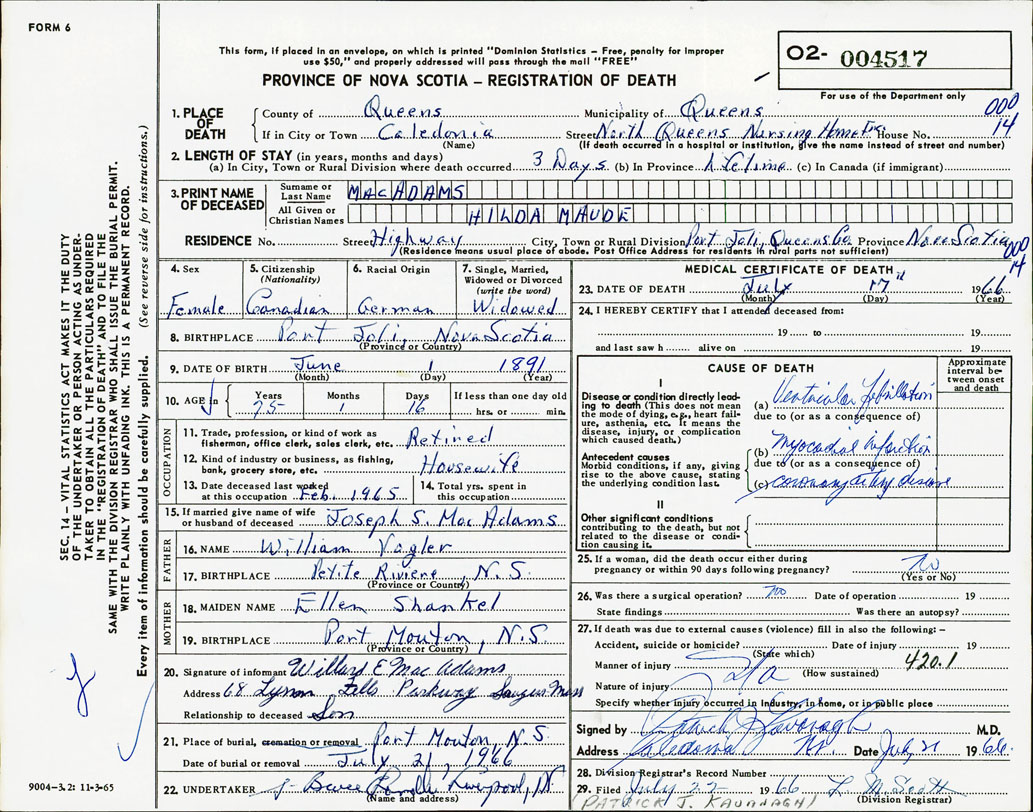 FORM 6
This form, if placed in an envelope, on which is printed "Dominion Statistics – Free, penalty for improper
use $50," and properly addressed will pass through the mail "FREE"
PROVINCE OF NOVA SCOTIA – REGISTRATION OF DEATH
O2- 004517
For use of the Department only
1. PLACE OF DEATH
County of Queens Municipality of Queens 000
If in City or Town Caledonia Street North Queens Nursing Home Inc. House No. 14
(Name) (If death occurred in a hospital or institution, give the name instead of street and number)
2. LENGTH OF STAY (in years, months and days)
(a) In City, Town or Rural Division where death occurred 3 Days (b) In Province Lifetime (c) In Canada (if immigrant)
3. PRINT NAME OF DECEASED
Surname or Last Name MACADAMS
All Given or Christian Names HILDA MAUDE
RESIDENCE No. Street Highway City, Town or Rural Division Port Joli, Queens Co. Province Nova Scotia 000
(Residence means usual place of abode. Post Office Address for residents in rural parts not sufficient) 14
4. Sex Female
5. Citizenship (Nationality) Canadian
6. Racial Origin German
7. Single, Married, Widowed or Divorced (write the word) Widowed
8. BIRTHPLACE Port Joli, Nova Scotia
(Province or Country)
9. DATE OF BIRTH June 1 1891
(Month) (Day) (Year)
10. AGE in Years 75 Months 1 Days 16 If less than one day old hrs. or min.
OCCUPATION
11. Trade, profession, or kind of work as fisherman, office clerk, sales clerk, etc. Retired
12. Kind of industry or business, as fishing, bank, grocery store, etc. Housewife
13. Date deceased last worked at this occupation Feb. 1965
14. Total yrs. spent in this occupation
15. If married give name of wife or husband of deceased Joseph S. MacAdams
FATHER
16. NAME William Vogler
17. BIRTHPLACE Petite Riviere, N.S.
(Province or Country)
MOTHER
18. MAIDEN NAME Ellen Shankel
19. BIRTHPLACE Port Mouton, N.S.
(Province or Country)
20. Signature of informant Willard E MacAdams
Address 68 Lynn Fells Parkway Saugus Mass
Relationship to deceased Son
21. Place of burial, cremation or removal Port Mouton, N.S.
Date of burial or removal July 21, 1966
22. UNDERTAKER Liverpool, NS
(Name and address)
MEDICAL CERTIFICATE OF DEATH
23. DATE OF DEATH July 17 1966
(Month) (Day) (Year)
24. I HEREBY CERTIFY that I attended deceased from:
19 to 19
and last saw h alive on 19
CAUSE OF DEATH
Approximate interval between onset and death
I
Disease or condition directly leading to death (This does not mean the mode of dying, e.g., heart failure, asthenia, etc. It means the disease, injury, or complication which caused death.)
(a) Ventricular fibrillation
due to (or as a consequence of)
Antecedent causes
Morbid conditions, if any, giving rise to the above cause, stating the underlying condition last.
(b) Myocardial infarction
due to (or as a consequence of)
(c) coronary artery disease
II
Other significant conditions contributing to the death, but not related to the disease or condition causing it.
25. If a woman, did the death occur either during pregnancy or within 90 days following pregnancy? No
(Yes or No)
26. Was there a surgical operation? no Date of operation 19
State findings Was there an autopsy?
27. If death was due to external causes (violence) fill in also the following: –
Accident, suicide or homicide? Date of injury 19
(State which)
Manner of injury 420.1
(How sustained)
Nature of injury
Specify whether injury occurred in Industry, in home, or in public place
Signed by Patrick J Kavanagh M.D.
Address Caledonia NS Date July 21 1966
28. Division Registrar's Record Number
29. Filed July 22 1966 L. M. Scott
(Division Registrar)
(PATRICK J. KAVANAGH)
SEC. 14 – VITAL STATISTICS ACT MAKES IT THE DUTY
OF THE UNDERTAKER OR PERSON ACTING AS UNDER-
TAKER TO OBTAIN ALL THE PARTICULARS REQUIRED
IN THE "REGISTRATION OF DEATH" AND TO FILE THE
SAME WITH THE DIVISION REGISTRAR WHO SHALL ISSUE THE BURIAL PERMIT.
WRITE PLAINLY WITH UNFADING INK. THIS IS A PERMANENT RECORD.
Every item of information should be carefully supplied. (See reverse side for instructions.)
9004-3.21 11-3-65